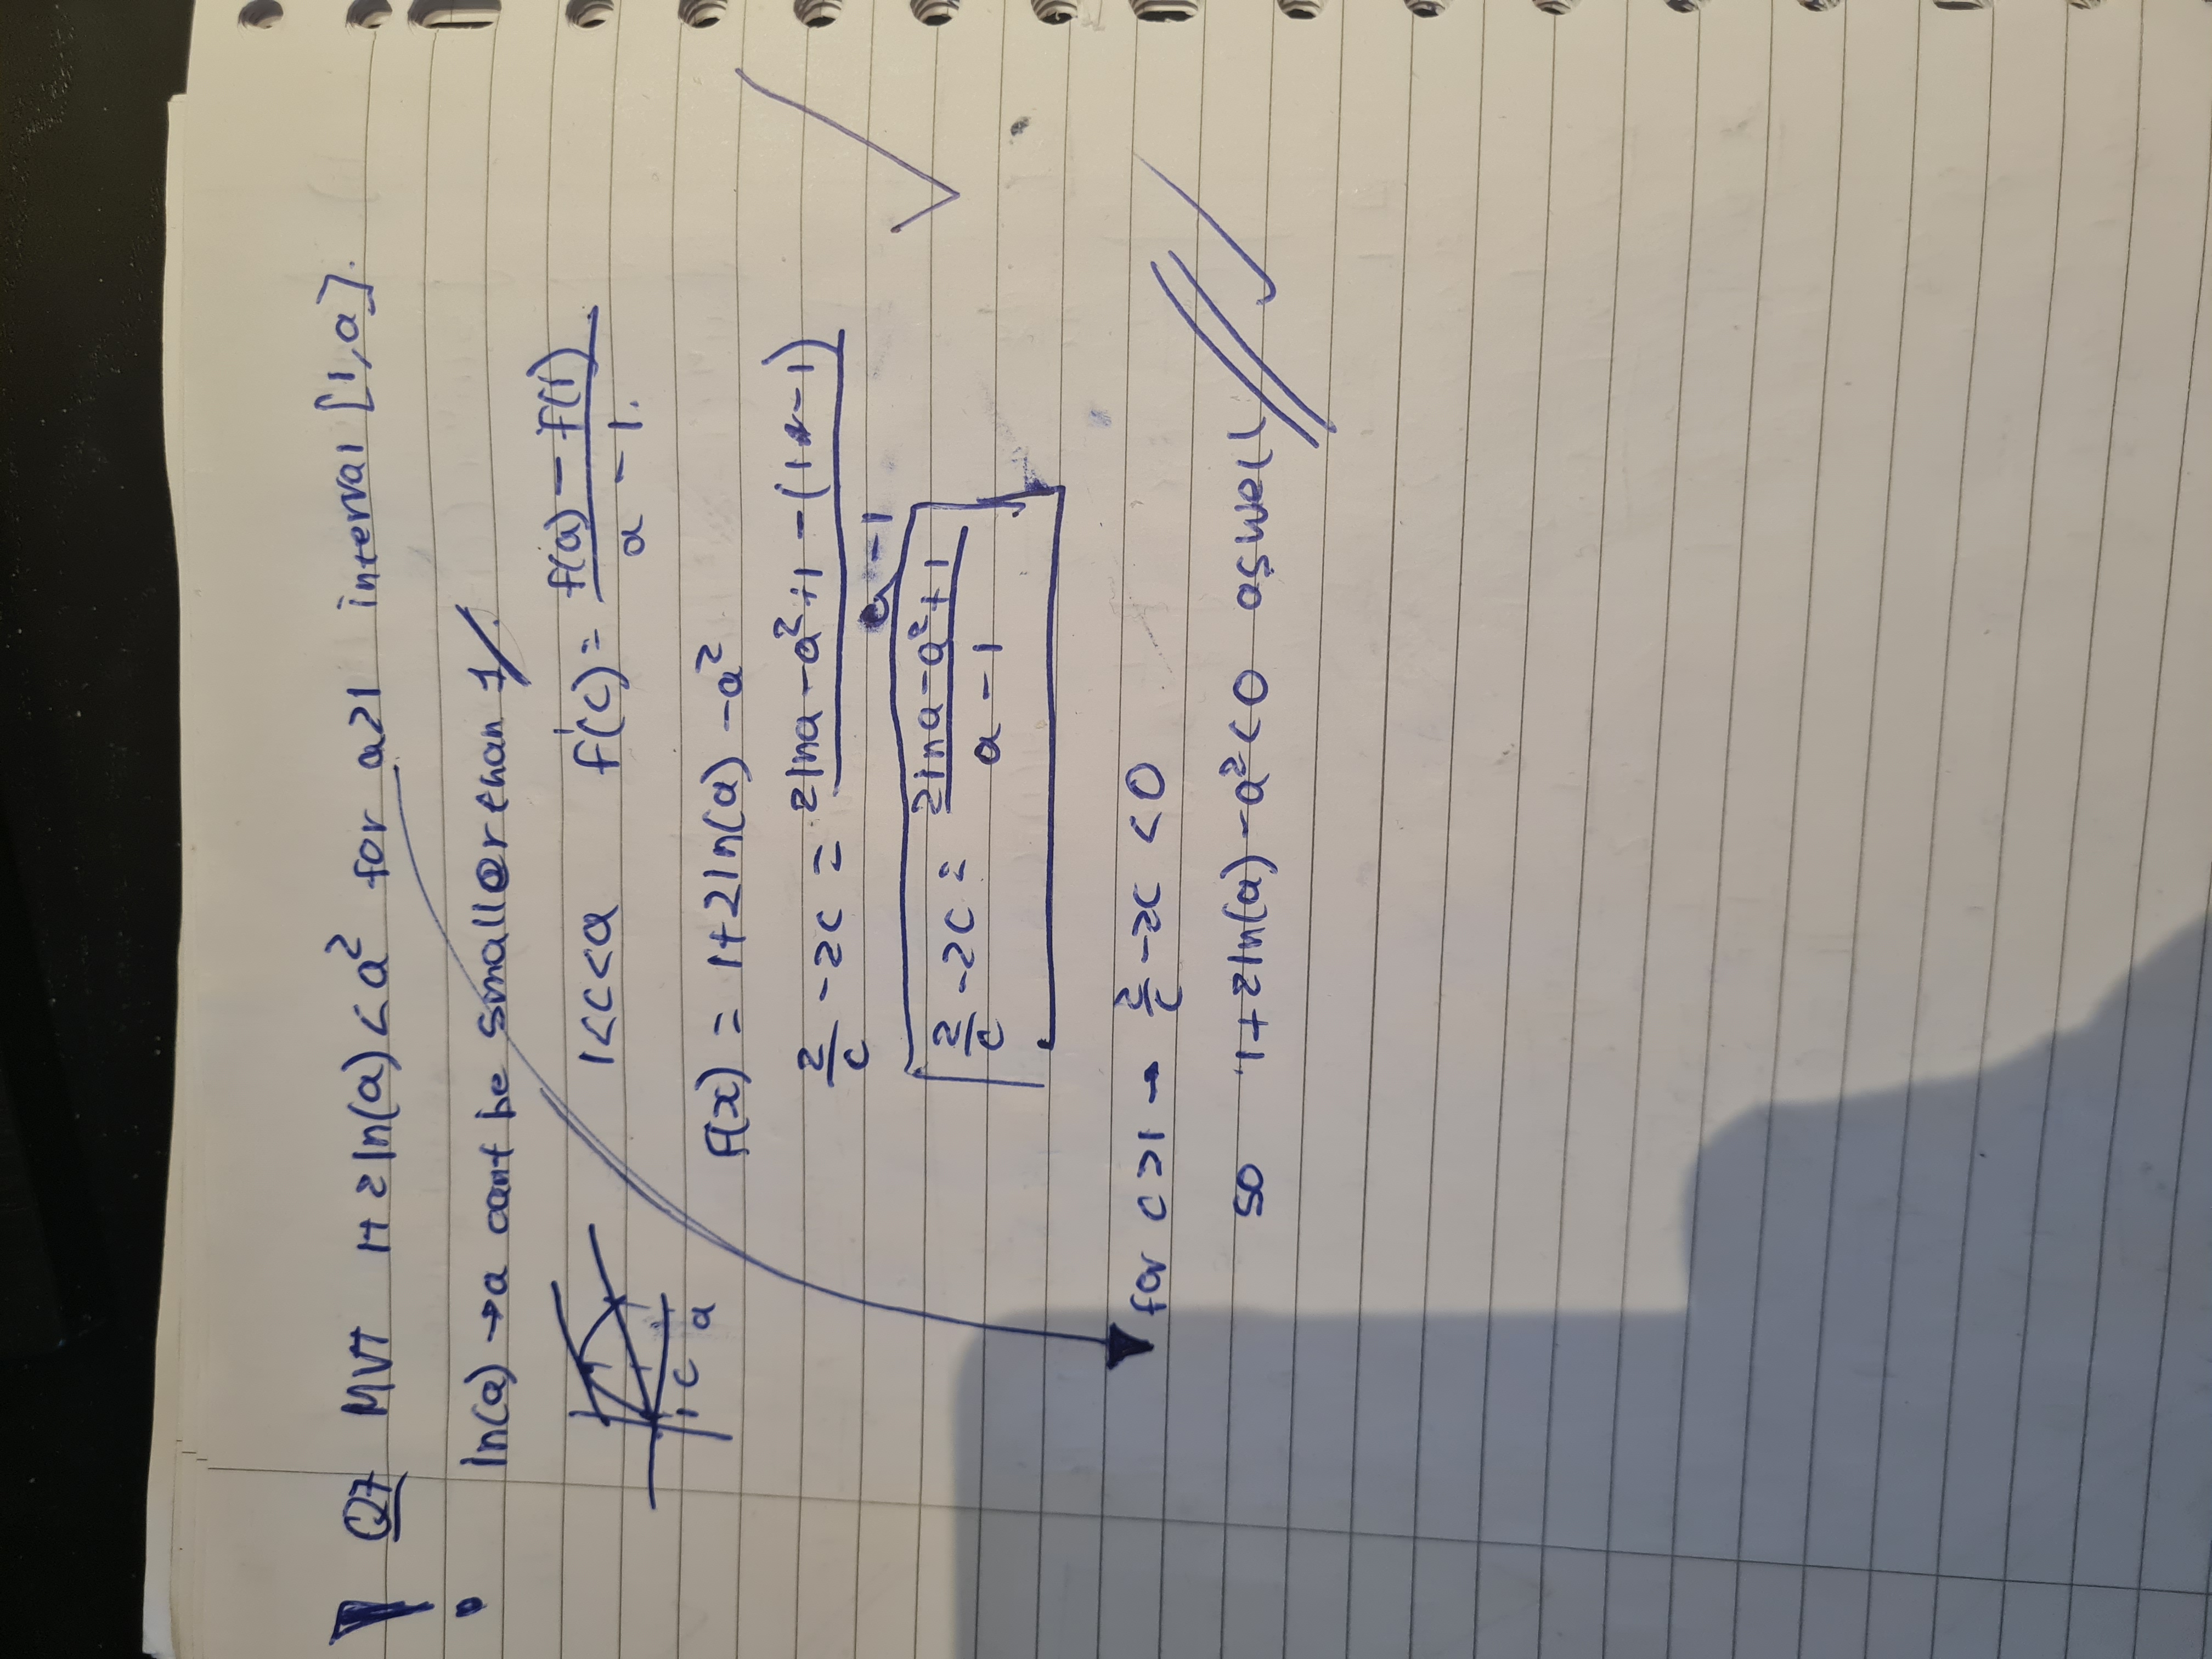 ! Q7 MVT 1+2ln(a)<a² for a>1 interval [1,a].
ln(a) → a cant be smaller than 1.
1<c<a f'(c) = (f(a) - f(1))/(a - 1).
1 c a
f(x) = 1+2ln(a) - a²
2/c - 2c = (2lna - a² + 1 - (1 - 1))/(a - 1)
2/c - 2c = (2lna - a² + 1)/(a - 1)
for c>1 → 2/c - 2c < 0
so 1+2ln(a) - a² < 0 aswell